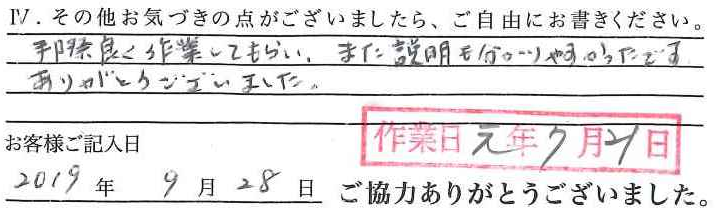 Ⅳ．その他お気づきの点がございましたら、ご自由にお書きください。
手際良く作業してもらい、また説明も分かりやすかったです
ありがとうございました。
お客様ご記入日
作業日 元年9月21日
2019年 9月28日 ご協力ありがとうございました。